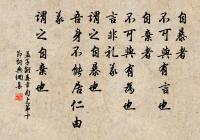 自暴者
不可與有言也
自棄者
不可與有為也
言非禮義
謂之自暴也
吾身不能居仁由
義
謂之自棄也
孟子離婁章句上第十
節詞典網集